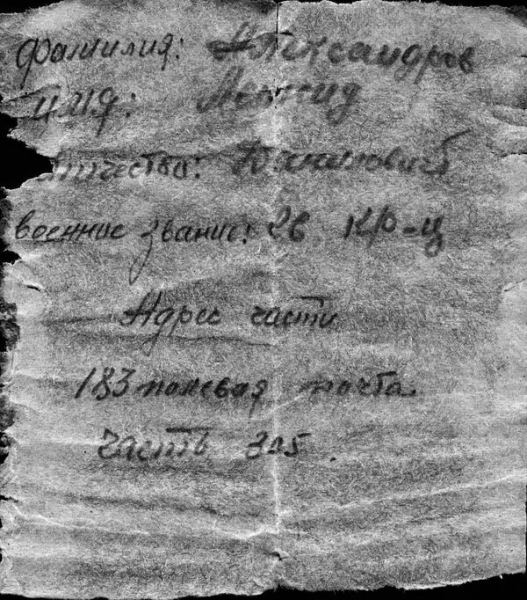 фамилия: Александров
имя: Леонид
отчества:
военное звание: кр-ц
Адрес части
183 полевая почта.
часть 305.